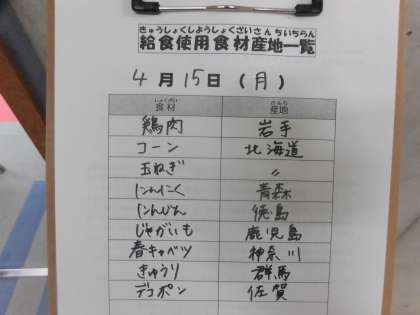 きゅうしょくしようしょくざいさんちいちらん
給食使用食材産地一覧
4月15日(月)
しょくざい さんち
食材 産地
鶏肉 岩手
コーン 北海道
玉ねぎ 〃
にんにく 青森
にんじん 徳島
じゃがいも 鹿児島
春キャベツ 神奈川
きゅうり 群馬
デコポン 佐賀